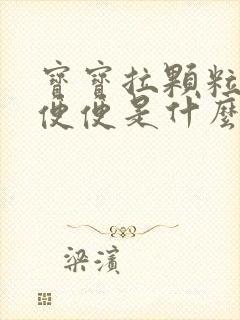 寶寶拉顆粒
便便是什麼
梁濱